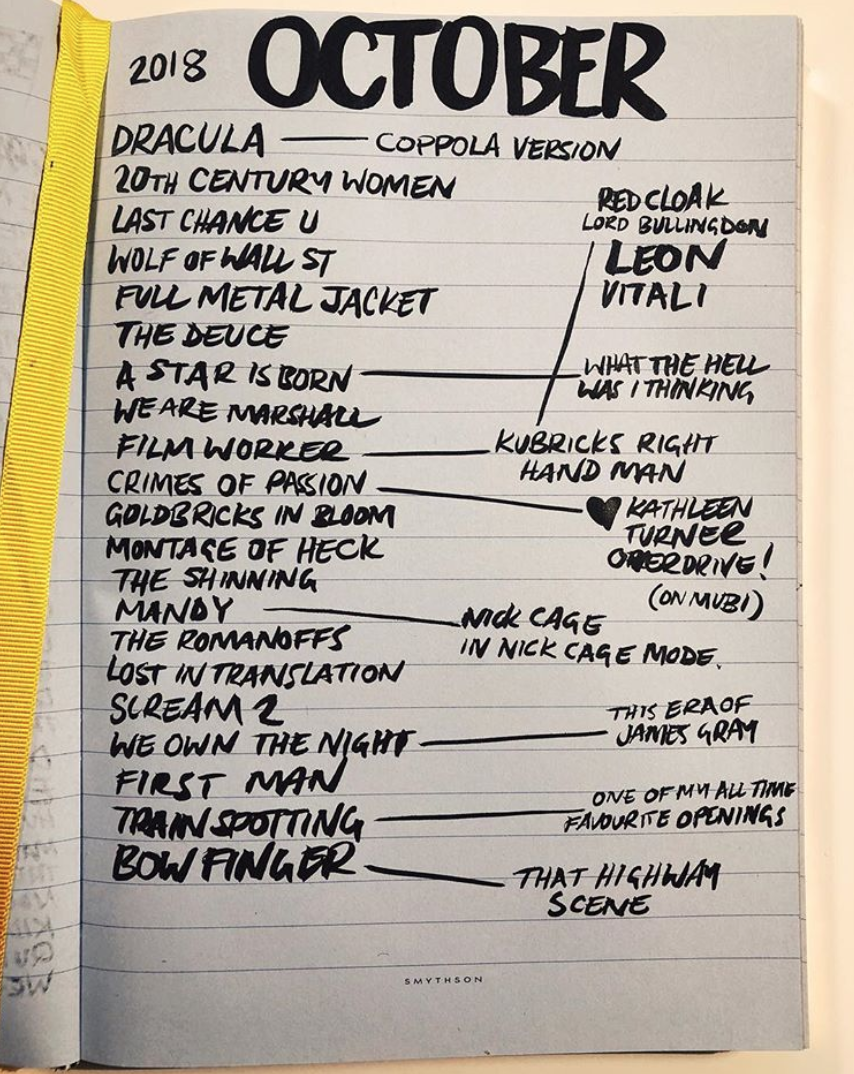 2018 OCTOBER
DRACULA — COPPOLA VERSION
20TH CENTURY WOMEN
LAST CHANCE U
WOLF OF WALL ST
FULL METAL JACKET
THE DEUCE
RED CLOAK
LORD BULLINGDON
LEON
VITALI
A STAR IS BORN — WHAT THE HELL
WAS I THINKING
WE ARE MARSHALL
FILM WORKER — KUBRICKS RIGHT
HAND MAN
CRIMES OF PASSION — ♥ KATHLEEN
TURNER
OVERDRIVE!
(ON MUBI)
GOLDBRICKS IN BLOOM
MONTAGE OF HECK
THE SHINNING
MANDY — NICK CAGE
IN NICK CAGE MODE.
THE ROMANOFFS
LOST IN TRANSLATION
SCREAM 2
WE OWN THE NIGHT — THIS ERA OF
JAMES GRAY
FIRST MAN
TRAINSPOTTING — ONE OF MY ALL TIME
FAVOURITE OPENINGS
BOWFINGER — THAT HIGHWAY
SCENE
SMYTHSON